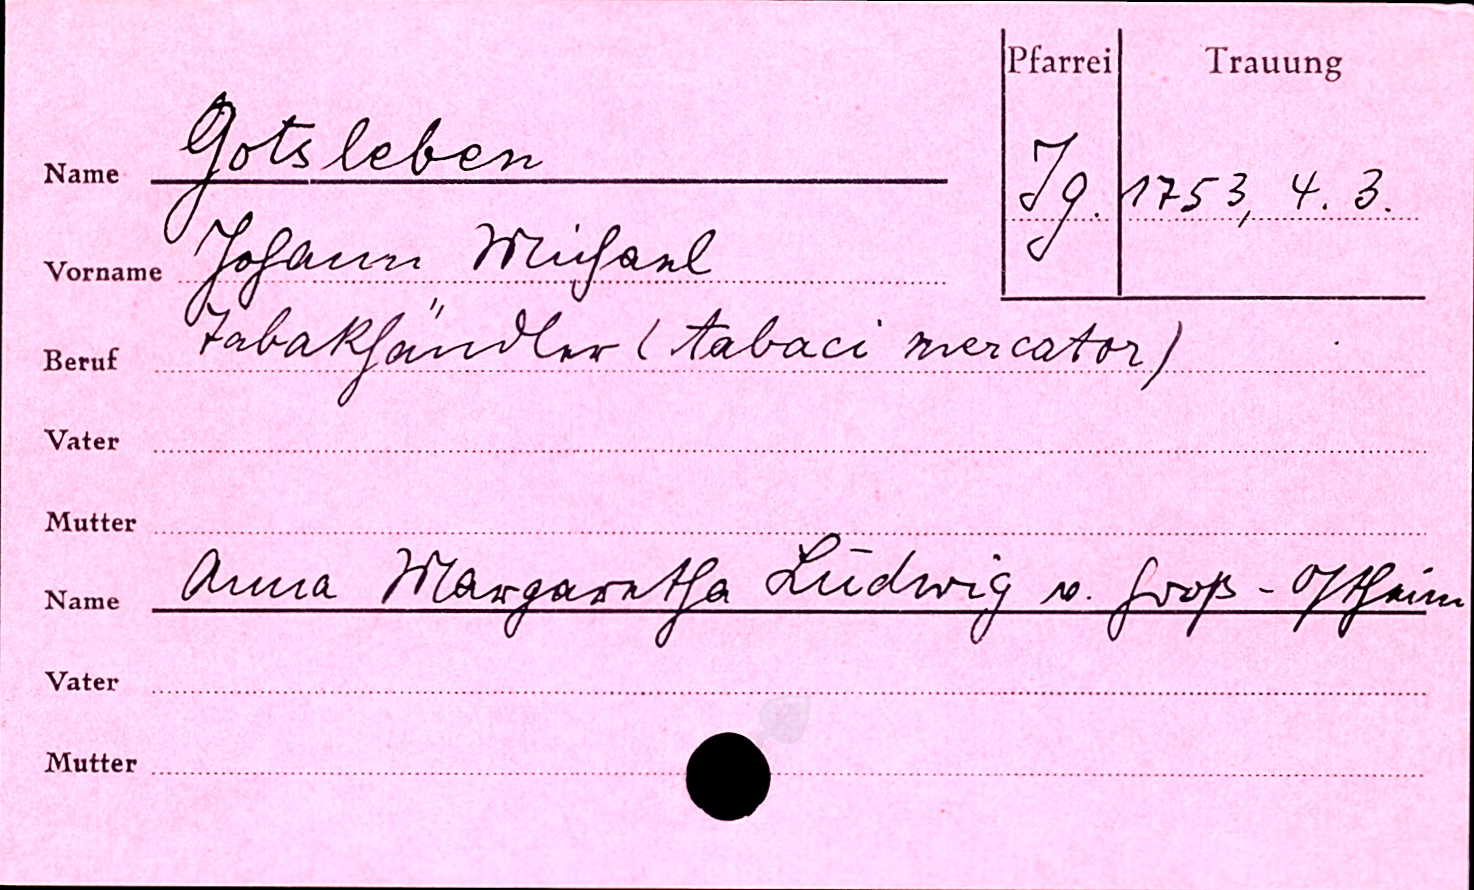 Pfarrei Trauung
Name Gotsleben
Jg. 1753, 4. 3.
Vorname Johann Michael
Beruf Tabakhändler (tabaci mercator)
Vater
Mutter
Name Anna Margaretha Ludwig v. Groß-Ostheim
Vater
Mutter